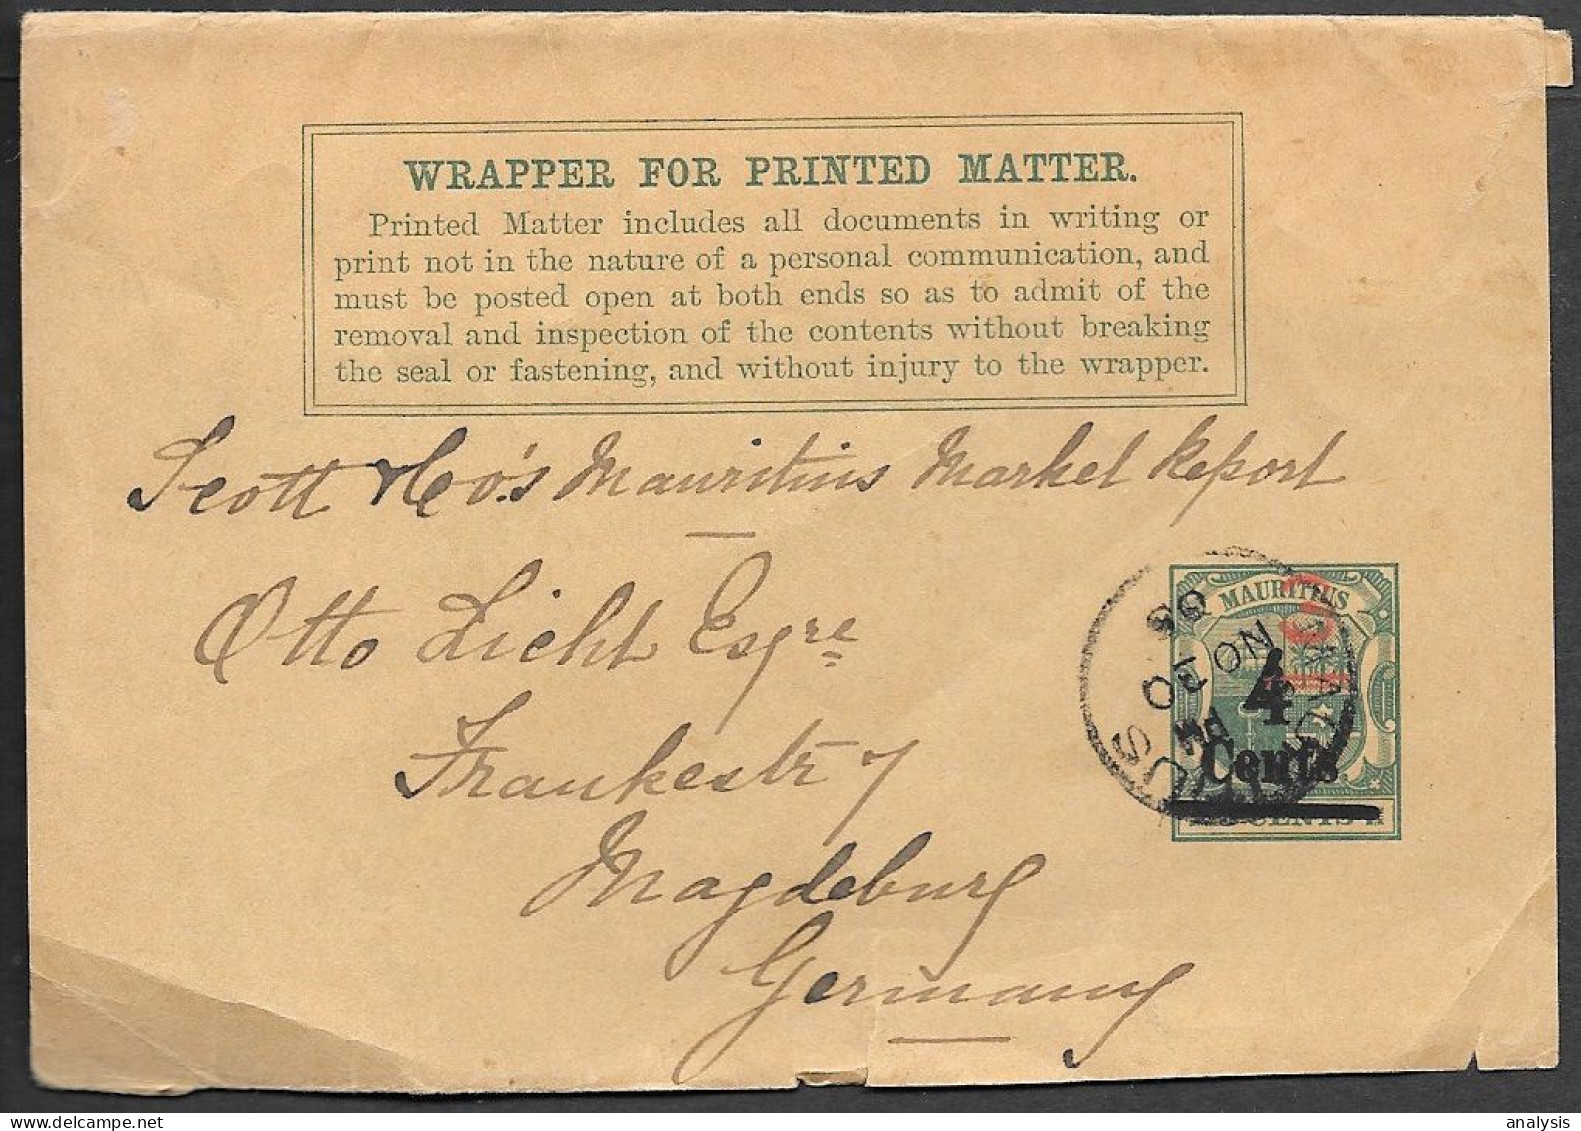 WRAPPER FOR PRINTED MATTER.
Printed Matter includes all documents in writing or
print not in the nature of a personal communication, and
must be posted open at both ends so as to admit of the
removal and inspection of the contents without breaking
the seal or fastening, and without injury to the wrapper.
Scott & Co's Mauritius Market Report
Otto Licht Esqre
Frankestr 7
Magdeburg
Germany
MAURITIUS
4
Cents
CENTS
MAURITIUS
PM
NO 10
analysis